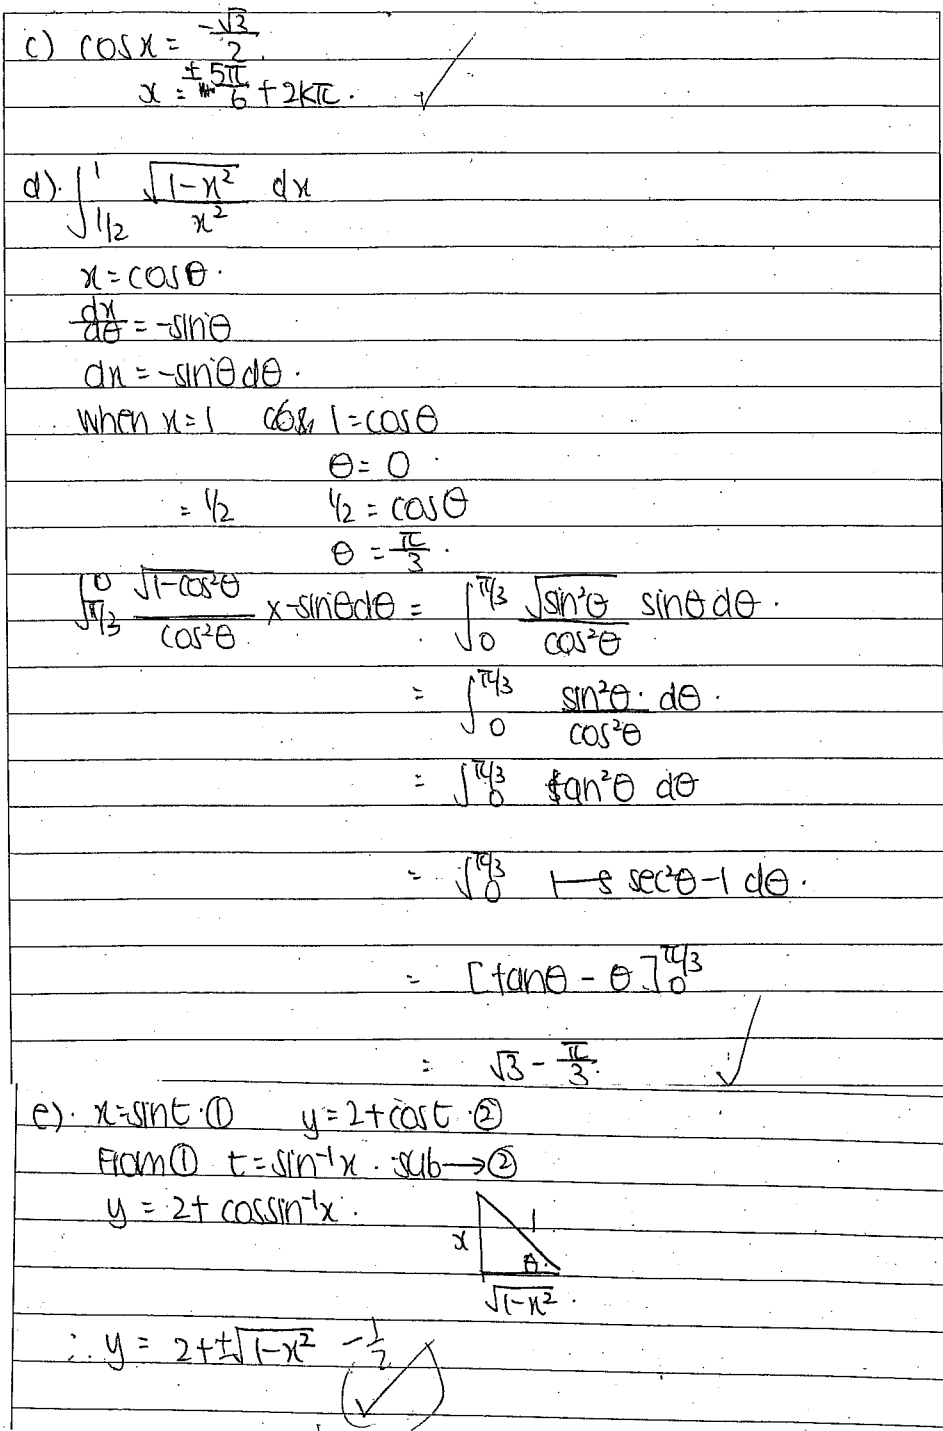 c) cosx = -√3/2
x = ±5π/6 + 2kπ.
d). ∫_{1/2}^{1} √(1-x²)/x² dx
x = cosθ.
dx/dθ = -sinθ
dx = -sinθdθ.
when x=1 1=cosθ
θ = 0
= 1/2 1/2 = cosθ
θ = π/3.
∫_{π/3}^{0} √(1-cos²θ)/cos²θ x -sinθdθ = ∫_{0}^{π/3} √(sin²θ)/cos²θ sinθdθ.
= ∫_{0}^{π/3} sin²θ/cos²θ. dθ.
= ∫_{0}^{π/3} tan²θ dθ
= ∫_{0}^{π/3} sec²θ-1 dθ.
= [tanθ - θ]_{0}^{π/3}
= √3 - π/3.
e). x=sint. ① y=2+cost. ②
From ① t=sin⁻¹x. sub→②
y = 2+ cossin⁻¹x.
x 1
θ.
√(1-x²).
∴ y = 2+±√(1-x²) -1/2